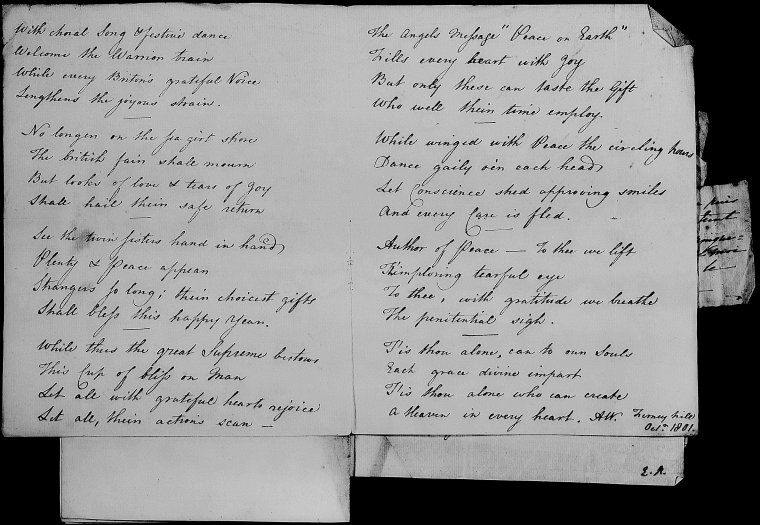 With choral Song & festive dance
Welcome the Warrior train
While every Briton's grateful Voice
Lengthens the joyous strain.
No longer on the sea girt shore
The british fair shall mourn
But looks of love & tears of joy
Shall hail their safe return
See the twin sisters hand in hand
Plenty & Peace appear
Strangers so long; their choicest gifts
Shall bless this happy Year.
While thus the great Supreme bestows
This Cup of bliss on Man
Let all with grateful hearts rejoice
Let all, their actions scan —
The Angels Message "Peace on Earth"
Fills every heart with Joy
But only these can taste the Gift
Who well their time employ.
While winged with Peace the circling hours
Dance gaily o'er each head
Let Conscience shed approving smiles
And every Care is fled.
Author of Peace — To thee we lift
Th'imploring tearful eye
To thee, with gratitude we breathe
The penitential sigh.
Tis thou alone, can to our Souls
Each grace divine impart
Tis thou alone who can create
A Heaven in every heart. AW.
Octr. 1801.
E.A.